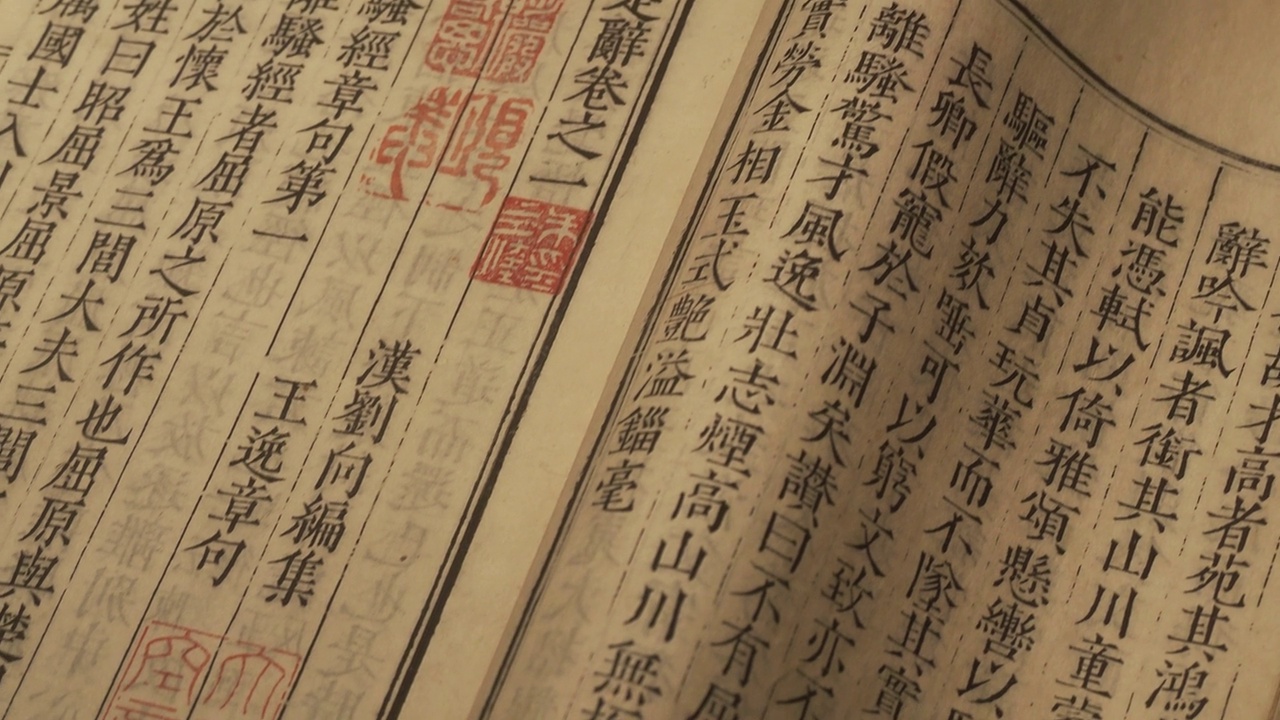 故才高者苑其鴻
辭吟諷者銜其山川童蒙
能憑軾以倚雅頌懸轡以
不失其貞玩華而不墜其實
驅辭力欬唾可以窮文致亦不
長卿假寵於子淵矣讚曰不有屈
離騷驚才風逸壯志煙高山川無極
實勞金相玉式艷溢錙毫
辭卷之一
漢劉向編集
王逸章句
騷經章句第一
離騷經者屈原之所作也屈原與楚
於懷王爲三閭大夫三閭
姓曰昭屈景屈原
屬國士入則